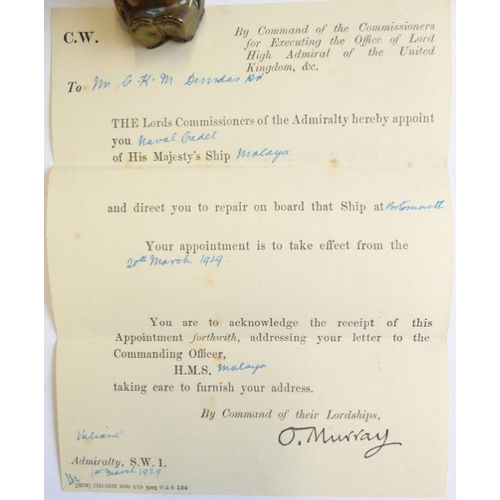 C.W.
By Command of the Commissioners
for Executing the Office of Lord
High Admiral of the United
Kingdom, &c.
To Mr C. K. M Dundas RN
THE Lords Commissioners of the Admiralty hereby appoint
you Naval Cadet
of His Majesty's Ship Malaya
and direct you to repair on board that Ship at Portsmouth
Your appointment is to take effect from the
20th March 1929.
You are to acknowledge the receipt of this
Appointment forthwith, addressing your letter to the
Commanding Officer,
H.M.S. Malaya
taking care to furnish your address.
By Command of their Lordships,
O. Murray
Valiant
Admiralty, S.W.1.
1st March 1929